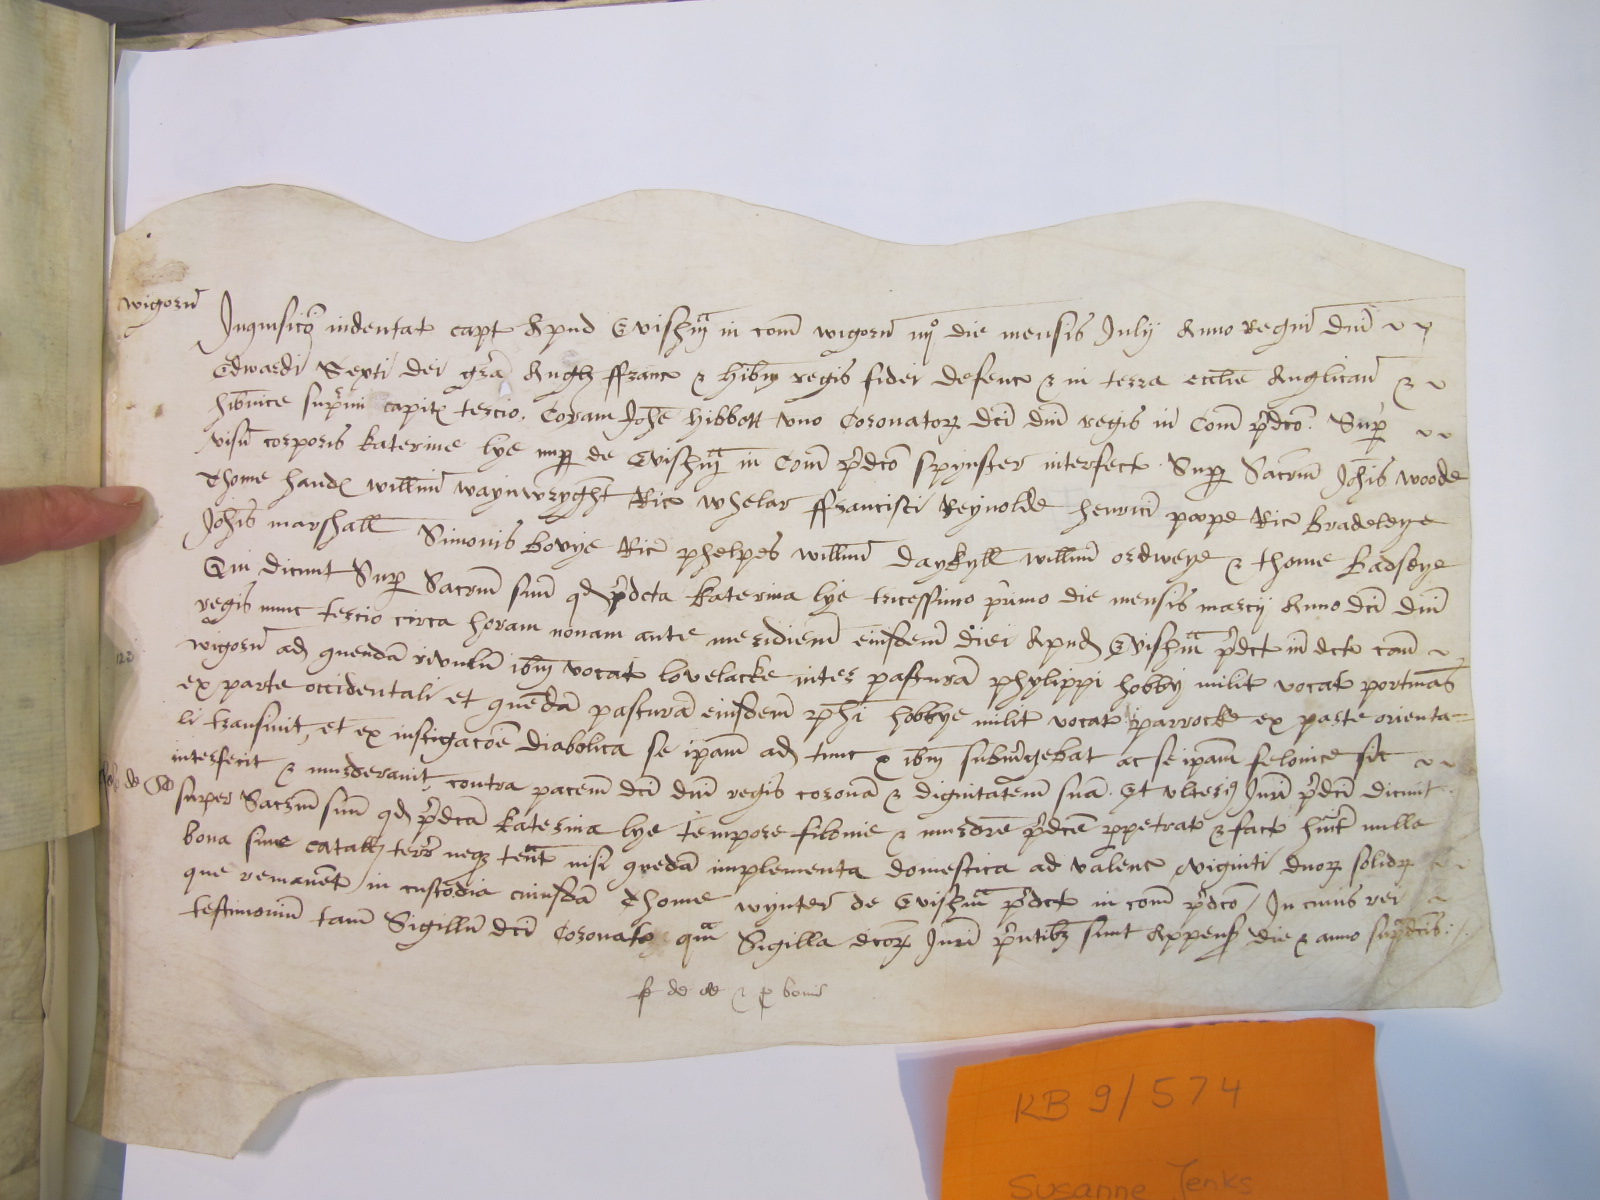 wigorn̄
Inquisic̄o indentat capt Apud Evishm̄ in com̄ wigorn̄ iiijº die mensis Julij Anno Regni Dn̄i
Edwardi Sexti dei gr̄a Angl ffranc & hib̄m regis fidei defenc & in terra eccl̄ie Anglican̄ &
hib̄nice sup̄mi capit tercio. Coram Joh̄e Hibbott vno Coronator dc̄i dn̄i regis in Com̄ p̄dc̄o. Sup̄
visū corporis katerine lye nup̄ de Evishm̄ in Com̄ p̄dc̄o spynster interfect Sup̄ Sacrm̄ Joh̄is woode
Thome hand willm̄i waynwryght Ric̄ whelar ffrancisci Reynolde henrici pope Ric̄ Bradeleye
Joh̄is marshall Simonis bovye Ric̄ phelpes willm̄i daykyll willm̄i ordweye & thome Badseye
Qui dicunt Sup̄ Sacrm̄ suū qd p̄dcta katerina lye tricessimo p̄imo die mensis marcij Anno dc̄i dn̄i
regis nunc tercio circa horam nonam ante meridiem̄ eiusdem̄ diei Apud Evishm̄ p̄dct in dct com̄
wigorn̄ ad quendā rivulū ib̄m vocat lovelacke inter pasturā phylippi hobby milit vocat portmās
ex parte occidentali et quedā pasturā eiusdem̄ ph̄i hobbye milit vocat parrocke ex parte orienta=
li transiuit, et ex instigac̄oe diabolica se ip̄am ad tunc & ib̄m submergebat ac se ip̄am felonice sic
interfecit & murderauit contra pacem̄ dc̄i dn̄i regis coronā & dignitatem̄ suā. Et vlterī Jur̄ p̄dc̄i dicunt
super Sacrm̄ suū qd p̄dcā katerina lye tempore felonie & murdre p̄dc̄e ppetrat & fact hūit nulla
bona siue catall terr̄ neq tent̄ nisi quedā implementa domestica ad valenc viginti duor solid
que remanēt in custodia cuiusdā Thome wynter de Evishm̄ p̄dct in com̄ p̄dc̄o / In cuius rei
testimoniū tam̄ Sigillū dc̄i Coronator qm̄ Sigilla dcor Jur̄ p̄ntib sunt Appens die & anno sup̄dc̄is.
KB 9/574
Susanne Jenks